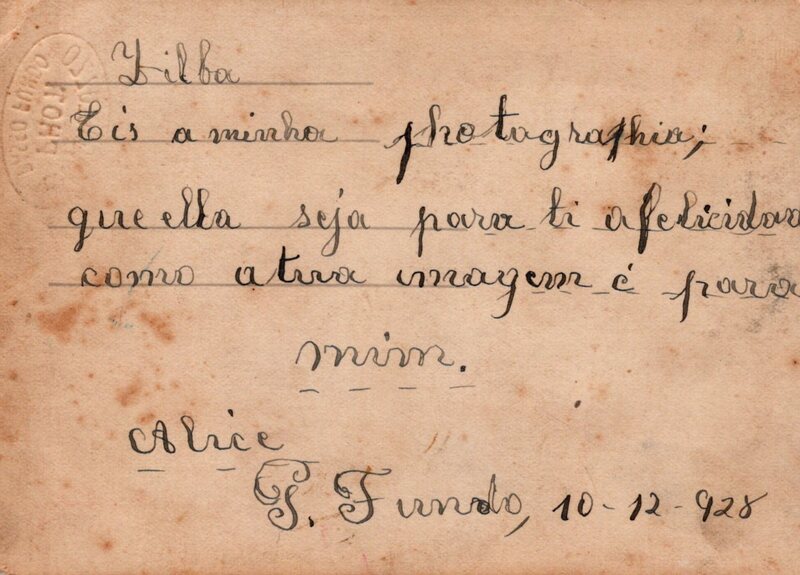 Zilba
Eis a minha photographia;
que ella seja para ti a felicidad
como a tua imagem é para
mim.
Alice
P. Fundo, 10-12-928